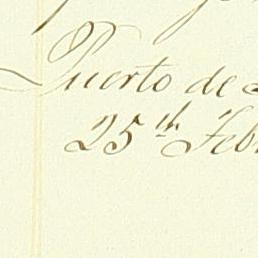 Puerto de
25th Feb